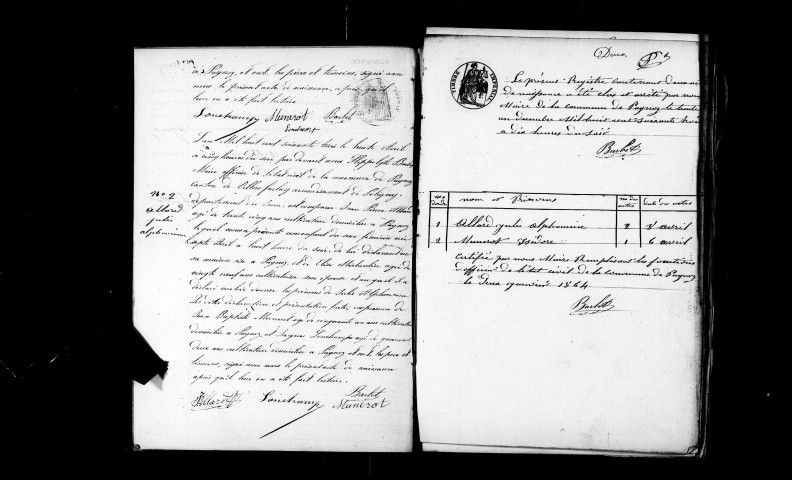 à Pagnoz, et ont, les père et témoins, signé avec
nous le présent acte de naissance, après qu'il
leur en a été fait lecture
Lonchamp Munerot Barbet
Lonchampt
L'an mil huit cent soixante trois le huit Avril
à cinq heures du soir par devant nous Hippolyte Barbet
Maire officier de l'état civil de la commune de Pagnoz
canton de Villers farlay arrondissement de Poligny
département du Jura, est comparu Jean Pierre Allard
agé de trente cinq ans cultivateur domicilié à Pagnoz
lequel nous a présenté un enfant du sexe féminin né
sept Avril à huit heures du soir, de lui déclarant en
sa maison sis à Pagnoz, et de Elise agée de
vingt neuf ans cultivatrice son épouse et auquel il a
déclaré vouloir donner les prénoms de Julie Alphonsine
Les dite déclaration et présentation faites en présence de
Jean Baptiste Munerot agé de cinquante un ans cultivateur
domicilié à Pagnoz et Lonchampt agé de quarante
deux ans cultivateur domicilié à Pagnoz et ont les père et
témoins, signé avec nous le présent acte de naissance
après qu'il leur en a été fait lecture.
Barbet
Allard Lonchamp Munerot
No 2
Allard
julie
alphonsine
Deux
TIMBRE IMPERIAL
Le présent Registre contenant deux actes
de naissance a été clos et arrêté par nous
Maire de la commune de Pagnoz le trente
un décembre mil huit cent soixante trois
à dix heures du soir
Barbet
nos d'ordre nom et Prénoms nos des actes date des actes
1 Allard julie alphonsine 2 8 avril
2 Munerot Isidore 1 6 avril
Certifié par nous Maire Remplissant les fonctions
d'officier de l'état civil de la commune de Pagnoz
le Deux janvier 1864
Barbet